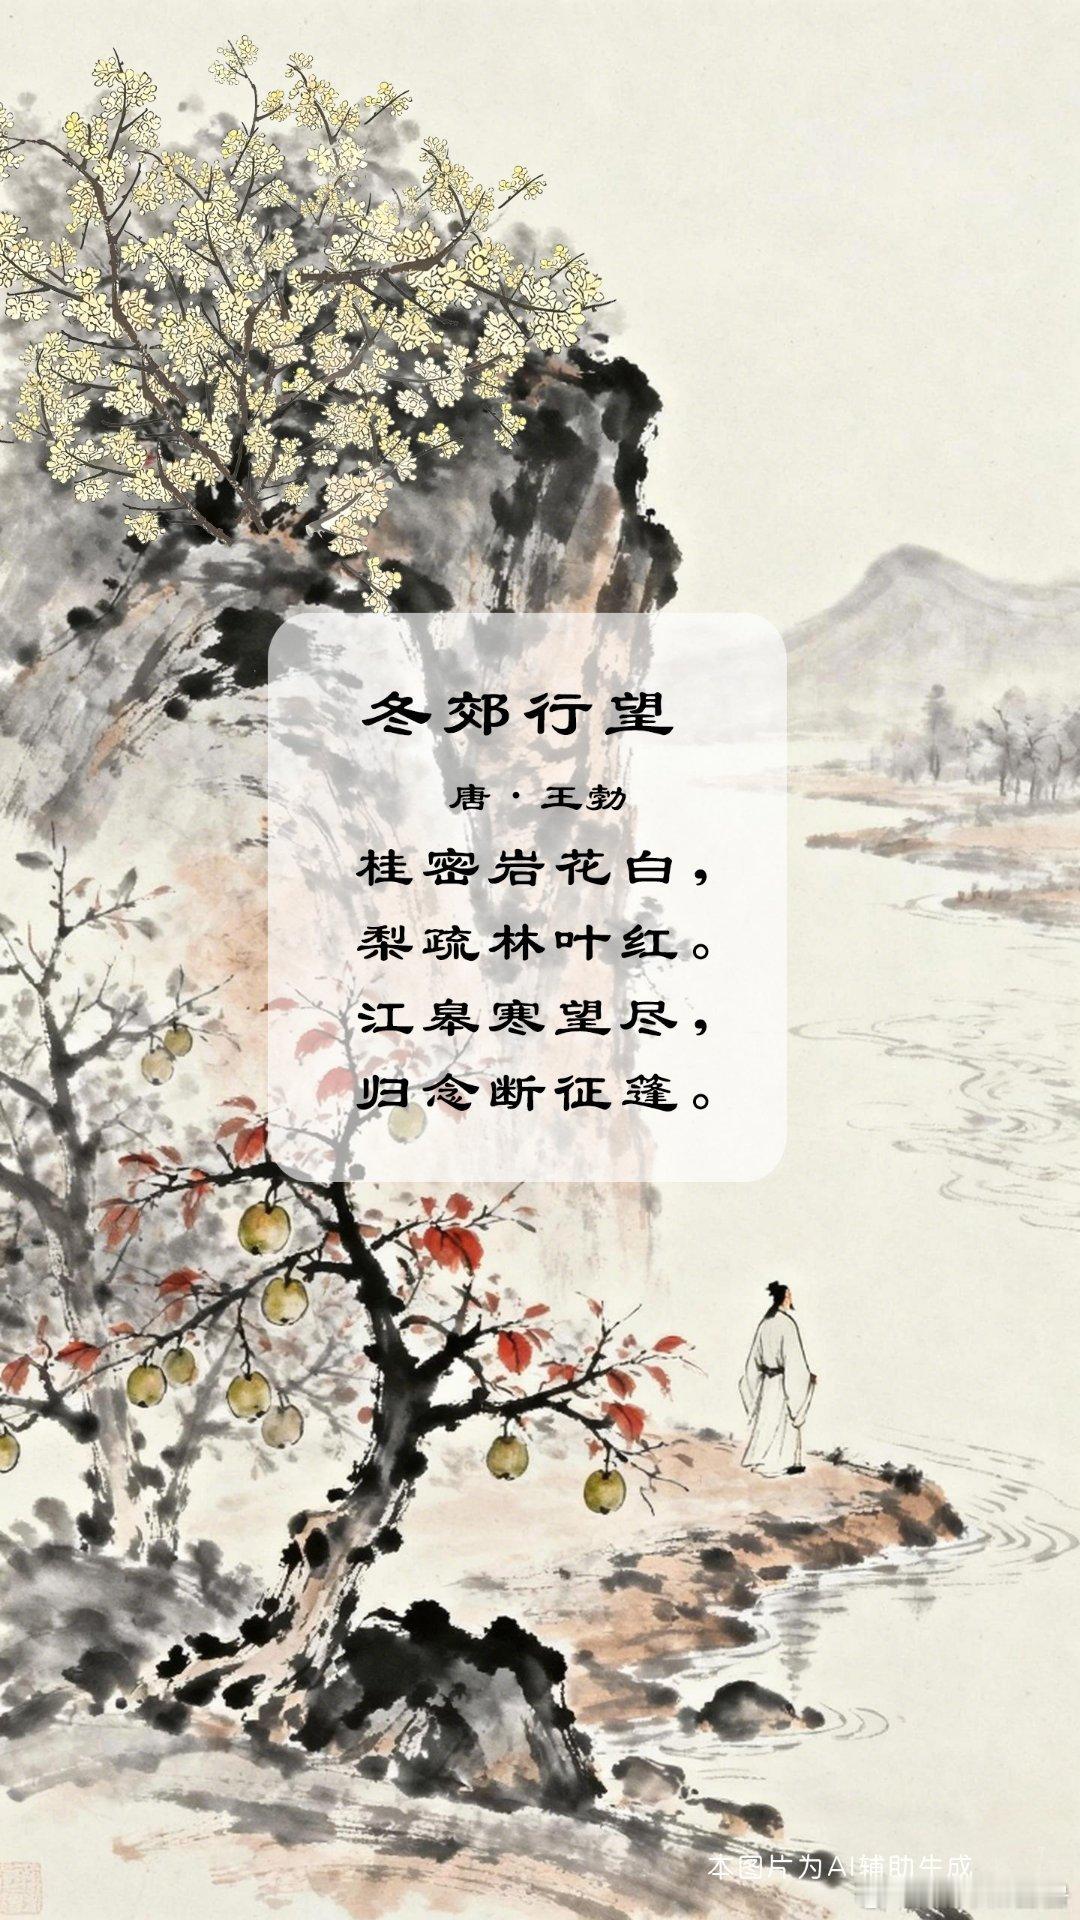 冬郊行望
唐·王勃
桂密岩花白，
梨疏林叶红。
江皋寒望尽，
归念断征篷。
本图片为AI辅助生成